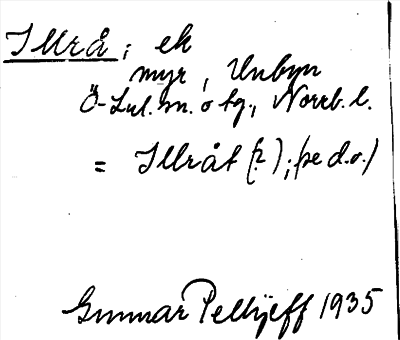 Illrå; ek
myr, Unbyn
Ö-Lul. sn. o tg., Norrb. l.
= Illråt (?); (se d.o.)
Gunnar Pellijeff 1935